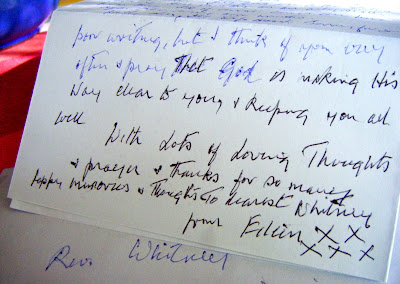 poor writing, but I think of you very
often & pray that God is making His
Way clear to you & keeping you all
well
With Lots of Loving Thoughts
& prayer & thanks for so many
happy memories & Thoughts to dearest Whitney
from Eileen X X
X X X
Rev Whitney